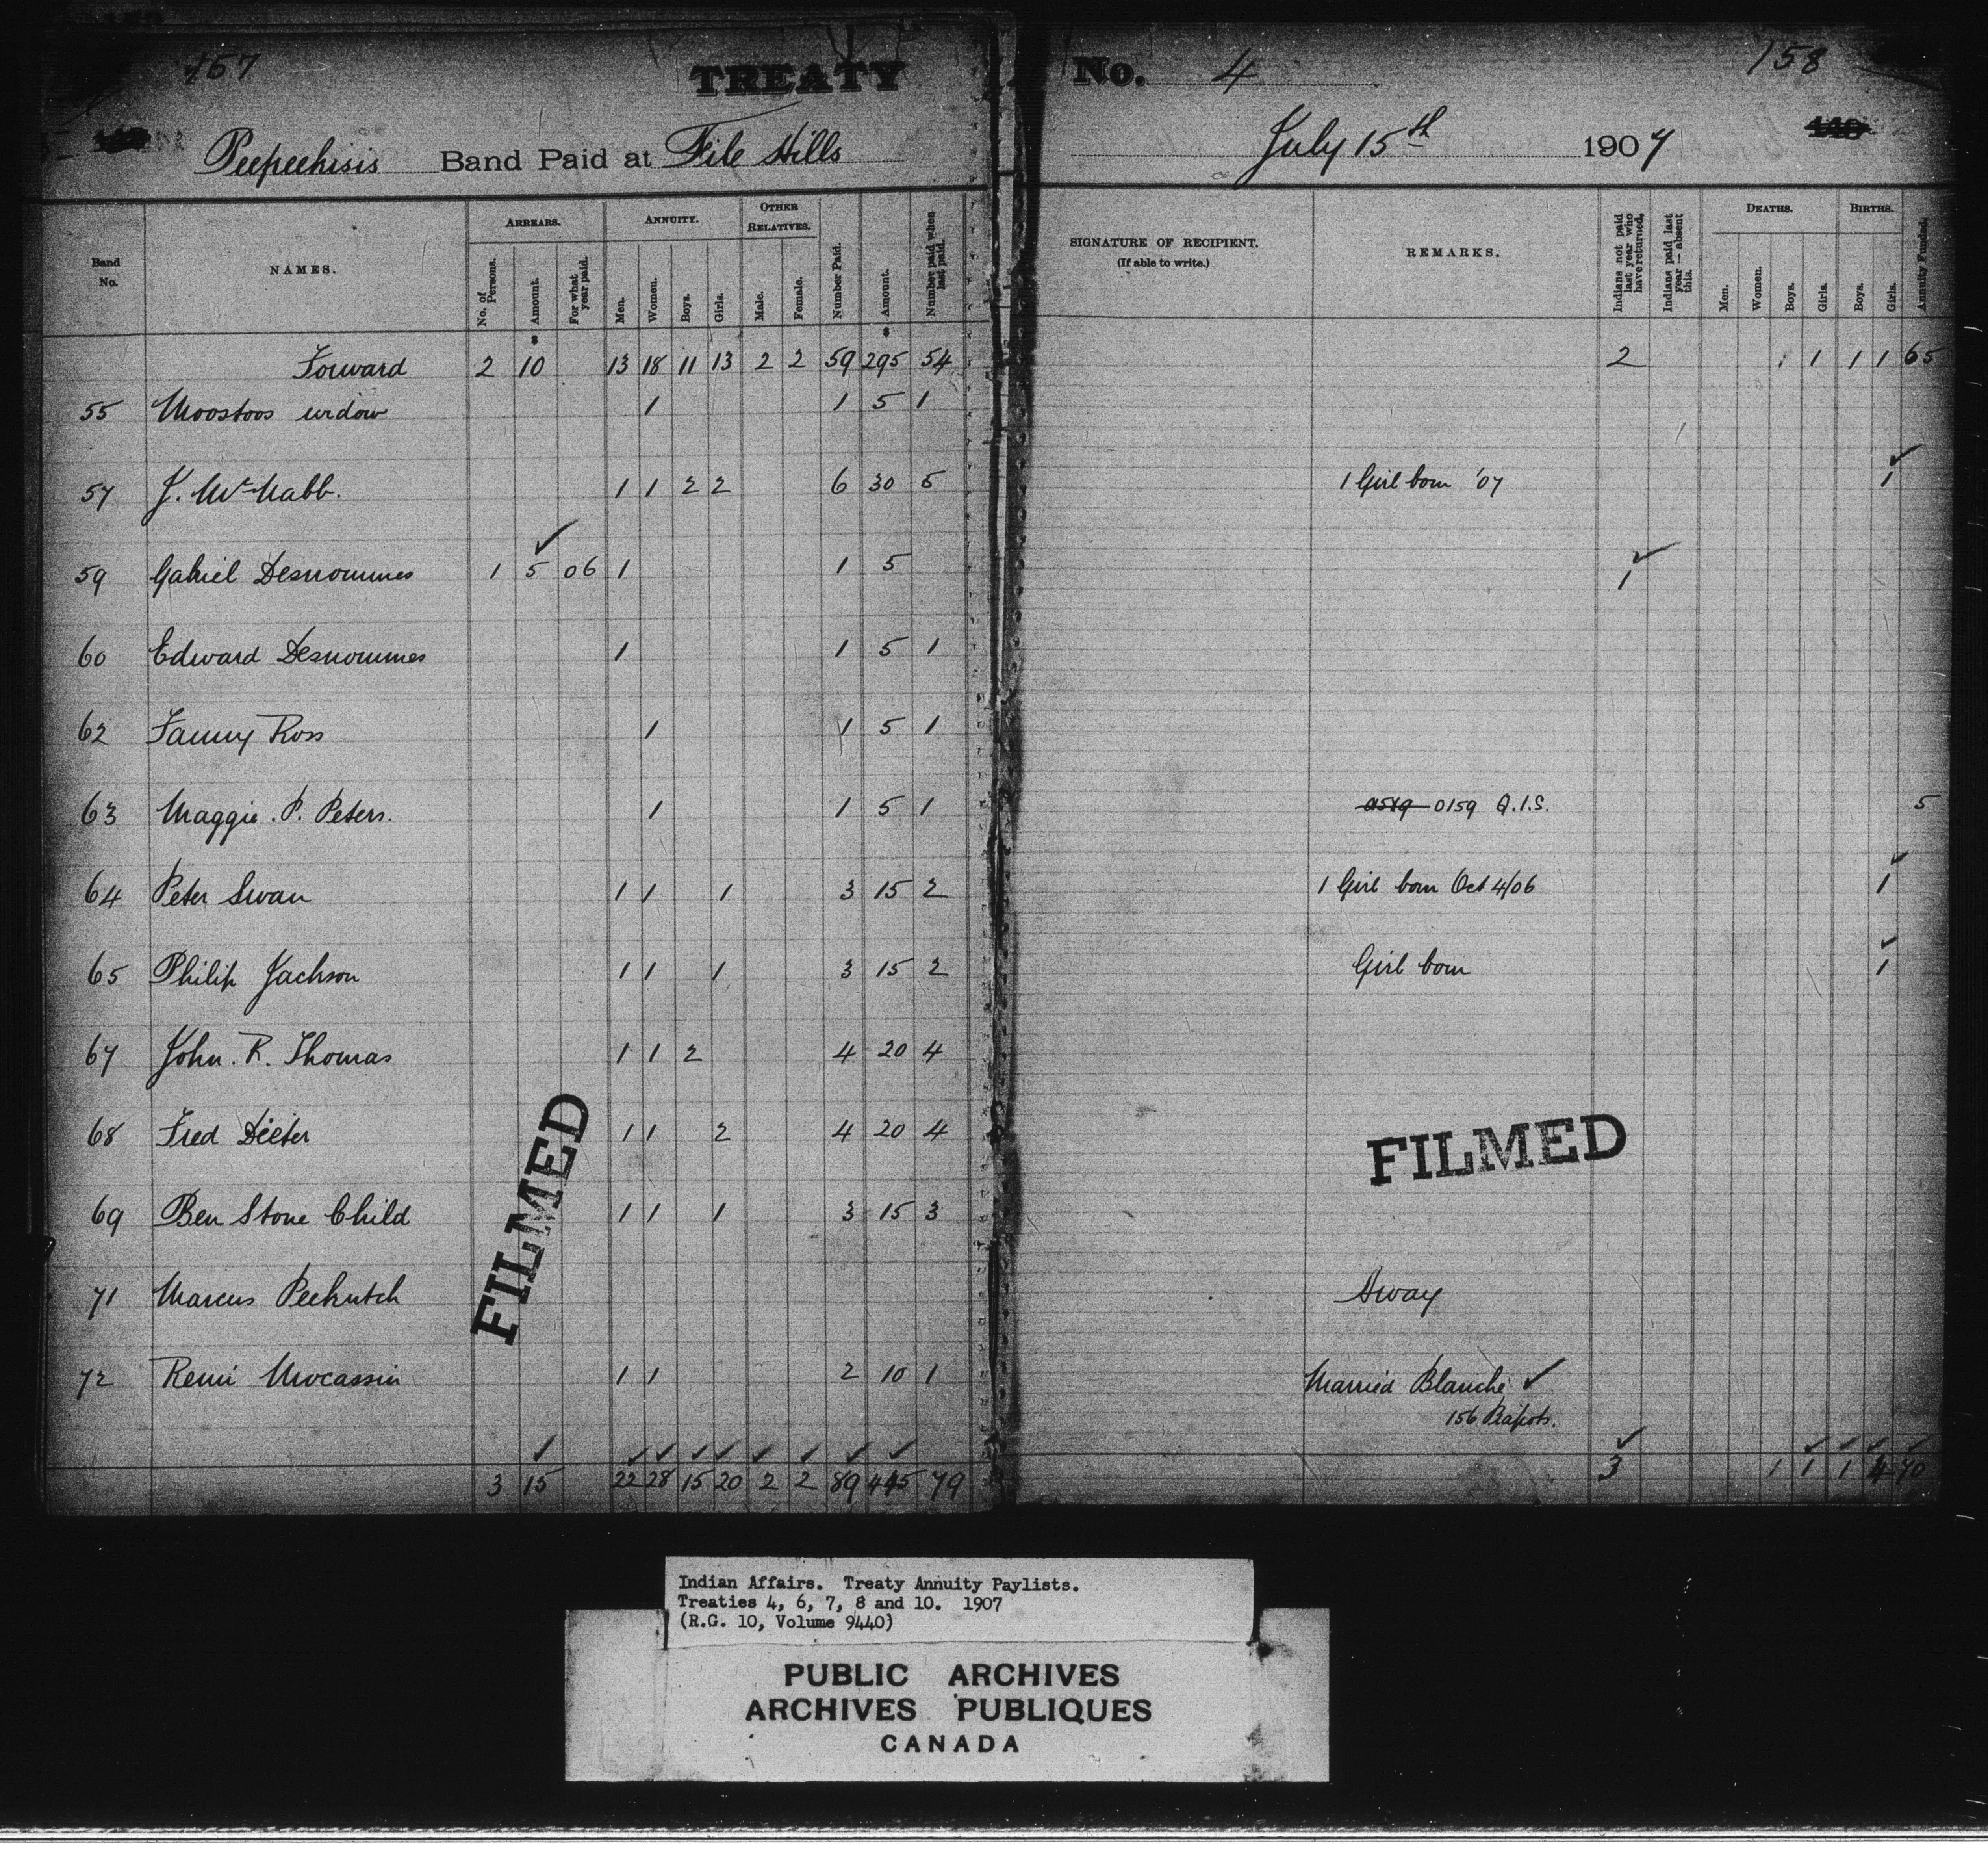 157 TREATY No. 4 158
Peepeekisis Band Paid at File Hills July 15th 1907
Band No. NAMES. ARREARS. ANNUITY. OTHER RELATIVES. Number Paid. Amount. Number paid when last paid. SIGNATURE OF RECIPIENT. (If able to write.) REMARKS. Indians not paid last year who have returned. Indians paid last year — absent this. DEATHS. BIRTHS. Annuity Funded.
No. of Persons. Amount. For what year paid. Men. Women. Boys. Girls. Male. Female. Men. Women. Boys. Girls. Boys. Girls.
$ $
Forward 2 10 13 18 11 13 2 2 59 295 54 2 1 1 1 1 65
55 Moostoos widow 1 1 5 1
57 J. McNabb. 1 1 2 2 6 30 5 1 Girl born '07 1 ✓
59 Gabriel Desnommes 1 5 ✓ 06 1 1 5 1 ✓
60 Edward Desnommes 1 1 5 1
62 Fanny Ross 1 1 5 1
63 Maggie. P. Peters. 1 1 5 1 0159 Q.I.S. 5
64 Peter Swan 1 1 1 3 15 2 1 Girl born Oct 4/06 1 ✓
65 Philip Jackson 1 1 1 3 15 2 Girl born 1 ✓
67 John. R. Thomas 1 1 2 4 20 4
68 Fred Deiter 1 1 2 4 20 4
69 Ben Stone Child 1 1 1 3 15 3
71 Marcus Peekutch Away
72 Remi Mocassin 1 1 2 10 1 Married Blanche ✓
156 Rapots.
3 15 22 28 15 20 2 2 89 445 79 3 1 1 1 4 70
FILMED
FILMED
Indian Affairs. Treaty Annuity Paylists.
Treaties 4, 6, 7, 8 and 10. 1907
(R.G. 10, Volume 9440)
PUBLIC ARCHIVES
ARCHIVES PUBLIQUES
CANADA